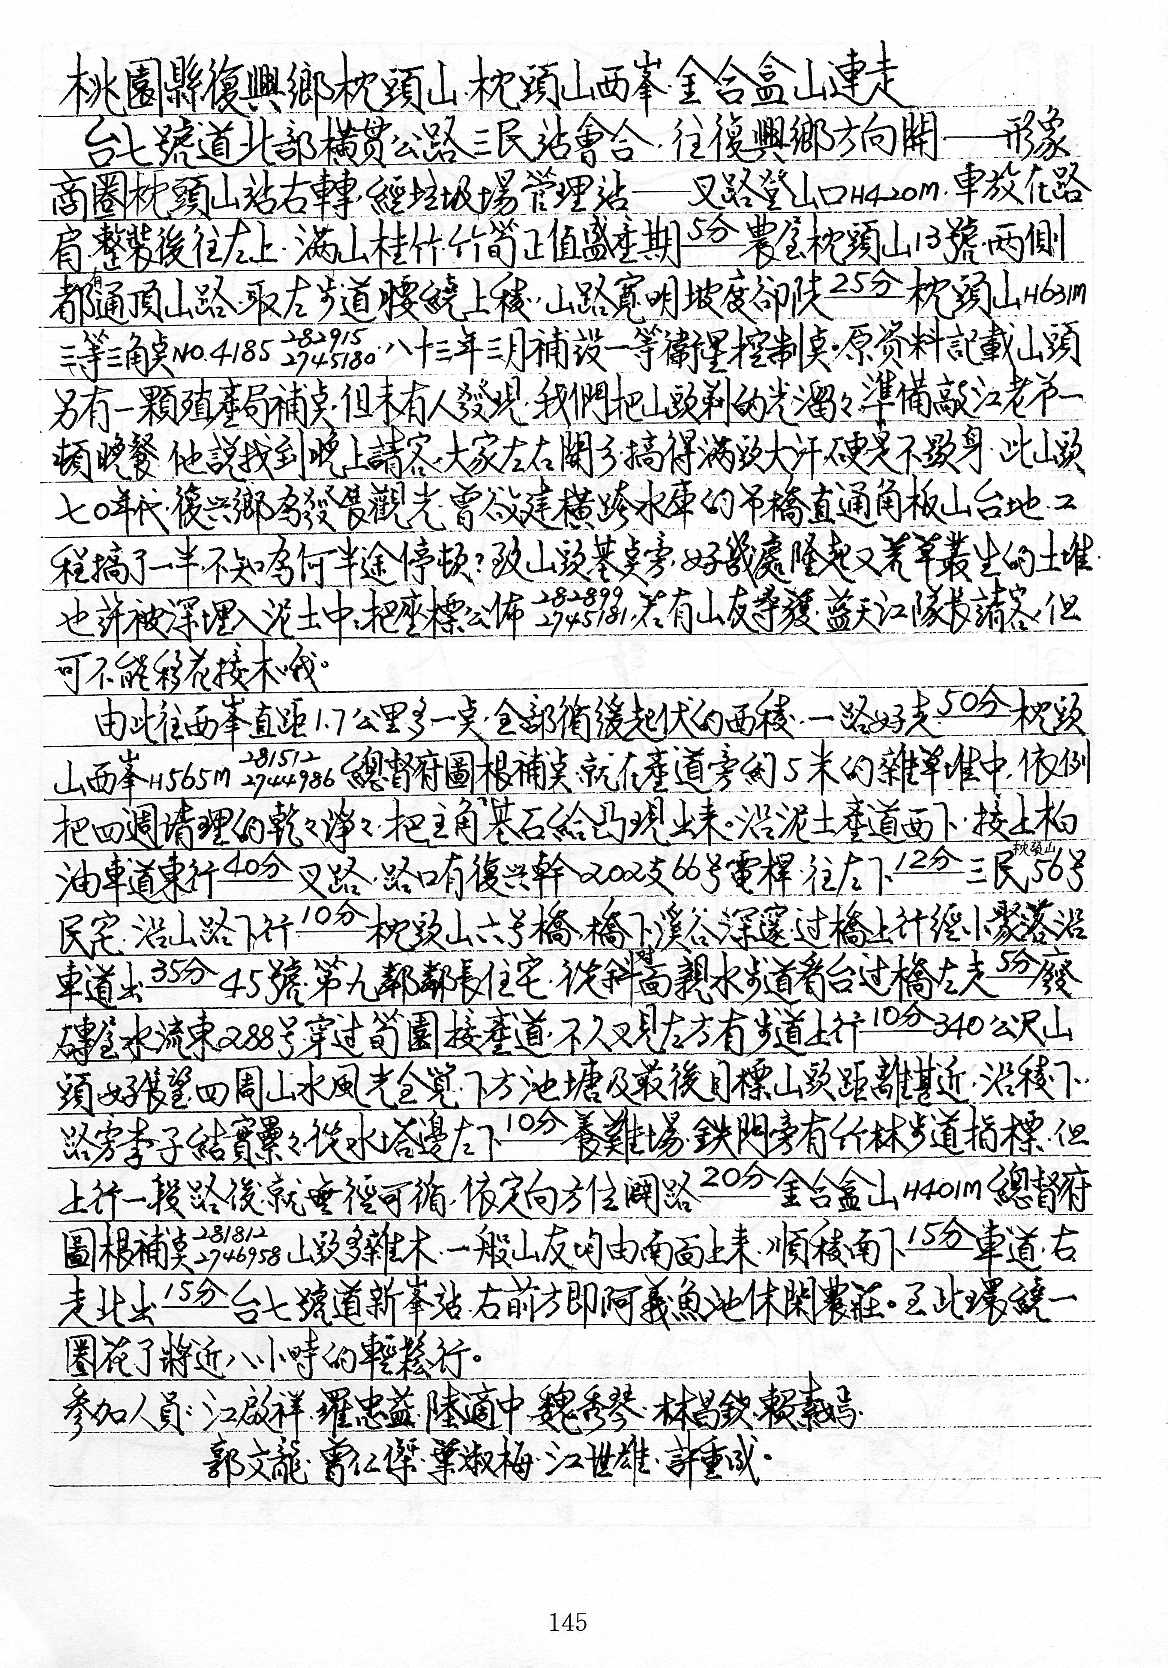 桃園縣復興鄉枕頭山.枕頭山西峯.金合盒山連走
台七號道北部橫貫公路三民站會合.往復興鄉方向開——形象
商圈枕頭山站右轉.經垃圾場管理站——叉路登山口H420M.車放在路
肩.整裝後往左上.滿山桂竹.竹筍正值盛產期5分農舍枕頭山13號.兩側
都有通頂山路.取左步道腰繞上稜.山路寬明坡度卻陡25分枕頭山H631M
三等三角点NO.4185 282915 2745180.八十三年三月補設一等衛星控制点.原资料記載山頭
另有一顆殖產局補点.但未有人發現.我們把山頭剃的光溜々.準備敲江老弟一
頓晚餐.他說找到晚上請客.大家左右開弓.搞得滿頭大汗硬是不顕身.此山頭
七0年代.復兴鄉為發展觀光.曾欲建橫跨水庫的吊橋直通角板山台地.工
程搞了一半.不知為何半途停頓？致山頭基点旁.好幾處隆起又荒草叢生的土堆.
也許被深埋入泥土中.把座標公佈282899 2745181.若有山友尋獲.蓝天江隊長請客.但
可不能移花接木哦。
由此往西峯直距1.7公里多一点.全部循緩起伏的西稜.一路好走50分枕頭
山西峯H565M 281512 2744986總督府圖根補点.就在產道旁約5米的雜草堆中.依例
把四週清理的乾々淨々.把主角基石給凸現出来。沿泥土產道西下.接上柏
油車道東行40分叉路.路口有復兴幹202支66号電桿.往左下12分三民枕頭山56号
民宅.沿山路下行10分枕頭山六号橋.橋下溪谷深邃.过橋上行經小聚落沿
車道出35分45號.第九鄰鄰長住宅.從斜對面親水步道看台过橋左走5分廢
磚舍水流東288号.穿过筍園接產道.不久又見左方有步道上行10分340公尺山
頭.好展望.四周山水風光全覽.下方池塘及最後目標山頭距離甚近.沿稜下.
路旁李子結實纍々.從水塔邊左下10分養雞場.鉄門旁有竹林步道指標.但
上行一段路後.就無徑可循.依定向方位開路20分金合盒山H401M總督府
圖根補点281812 2746958山頭多雜木.一般山友均由南面上来.順稜南下15分車道.右
走北出15分台七號道新峯站.右前方即阿義魚池休閑農莊。至此環繞一
圈花了將近八小時的輕鬆行。
參加人員：江啟祥.羅忠益.陸適中.魏秀琴.林昌欽.賴素嫣.
郭文龍.曾仁傑.葉淑梅.江世雄.許重威。
145